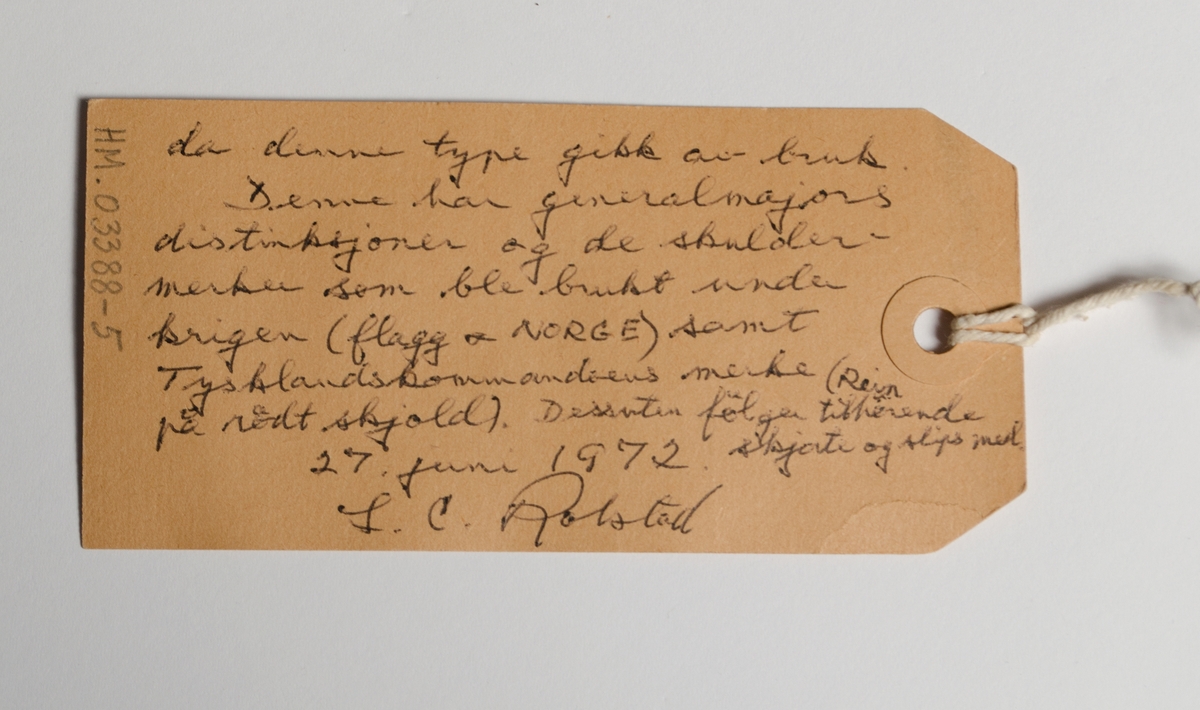 da denne type gikk av bruk.
Denne har generalmajors
distinksjoner og de skulder-
merker som ble brukt under
krigen (flagg & NORGE) samt
Tysklandskommandoens merke (Rein
på rødt skjold). Dessuten følger tilhørende
skjorte og slips med.
27. juni 1972.
L. C. Rolstad
HM.03388-5